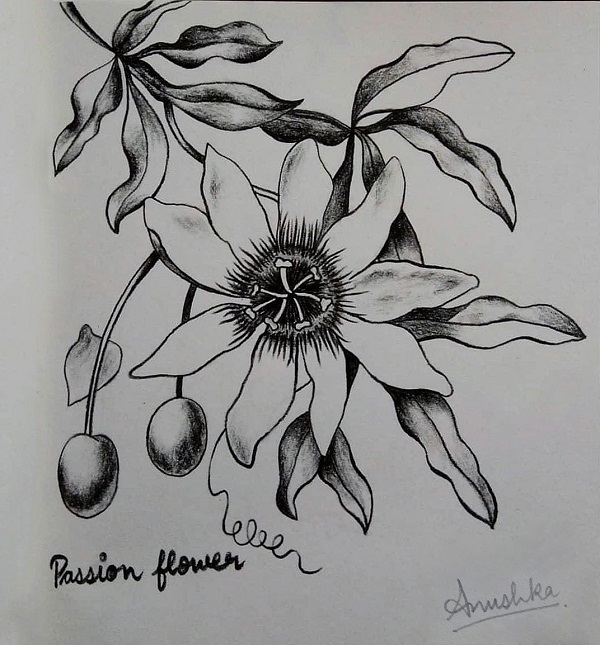 Passion flower
Anushka